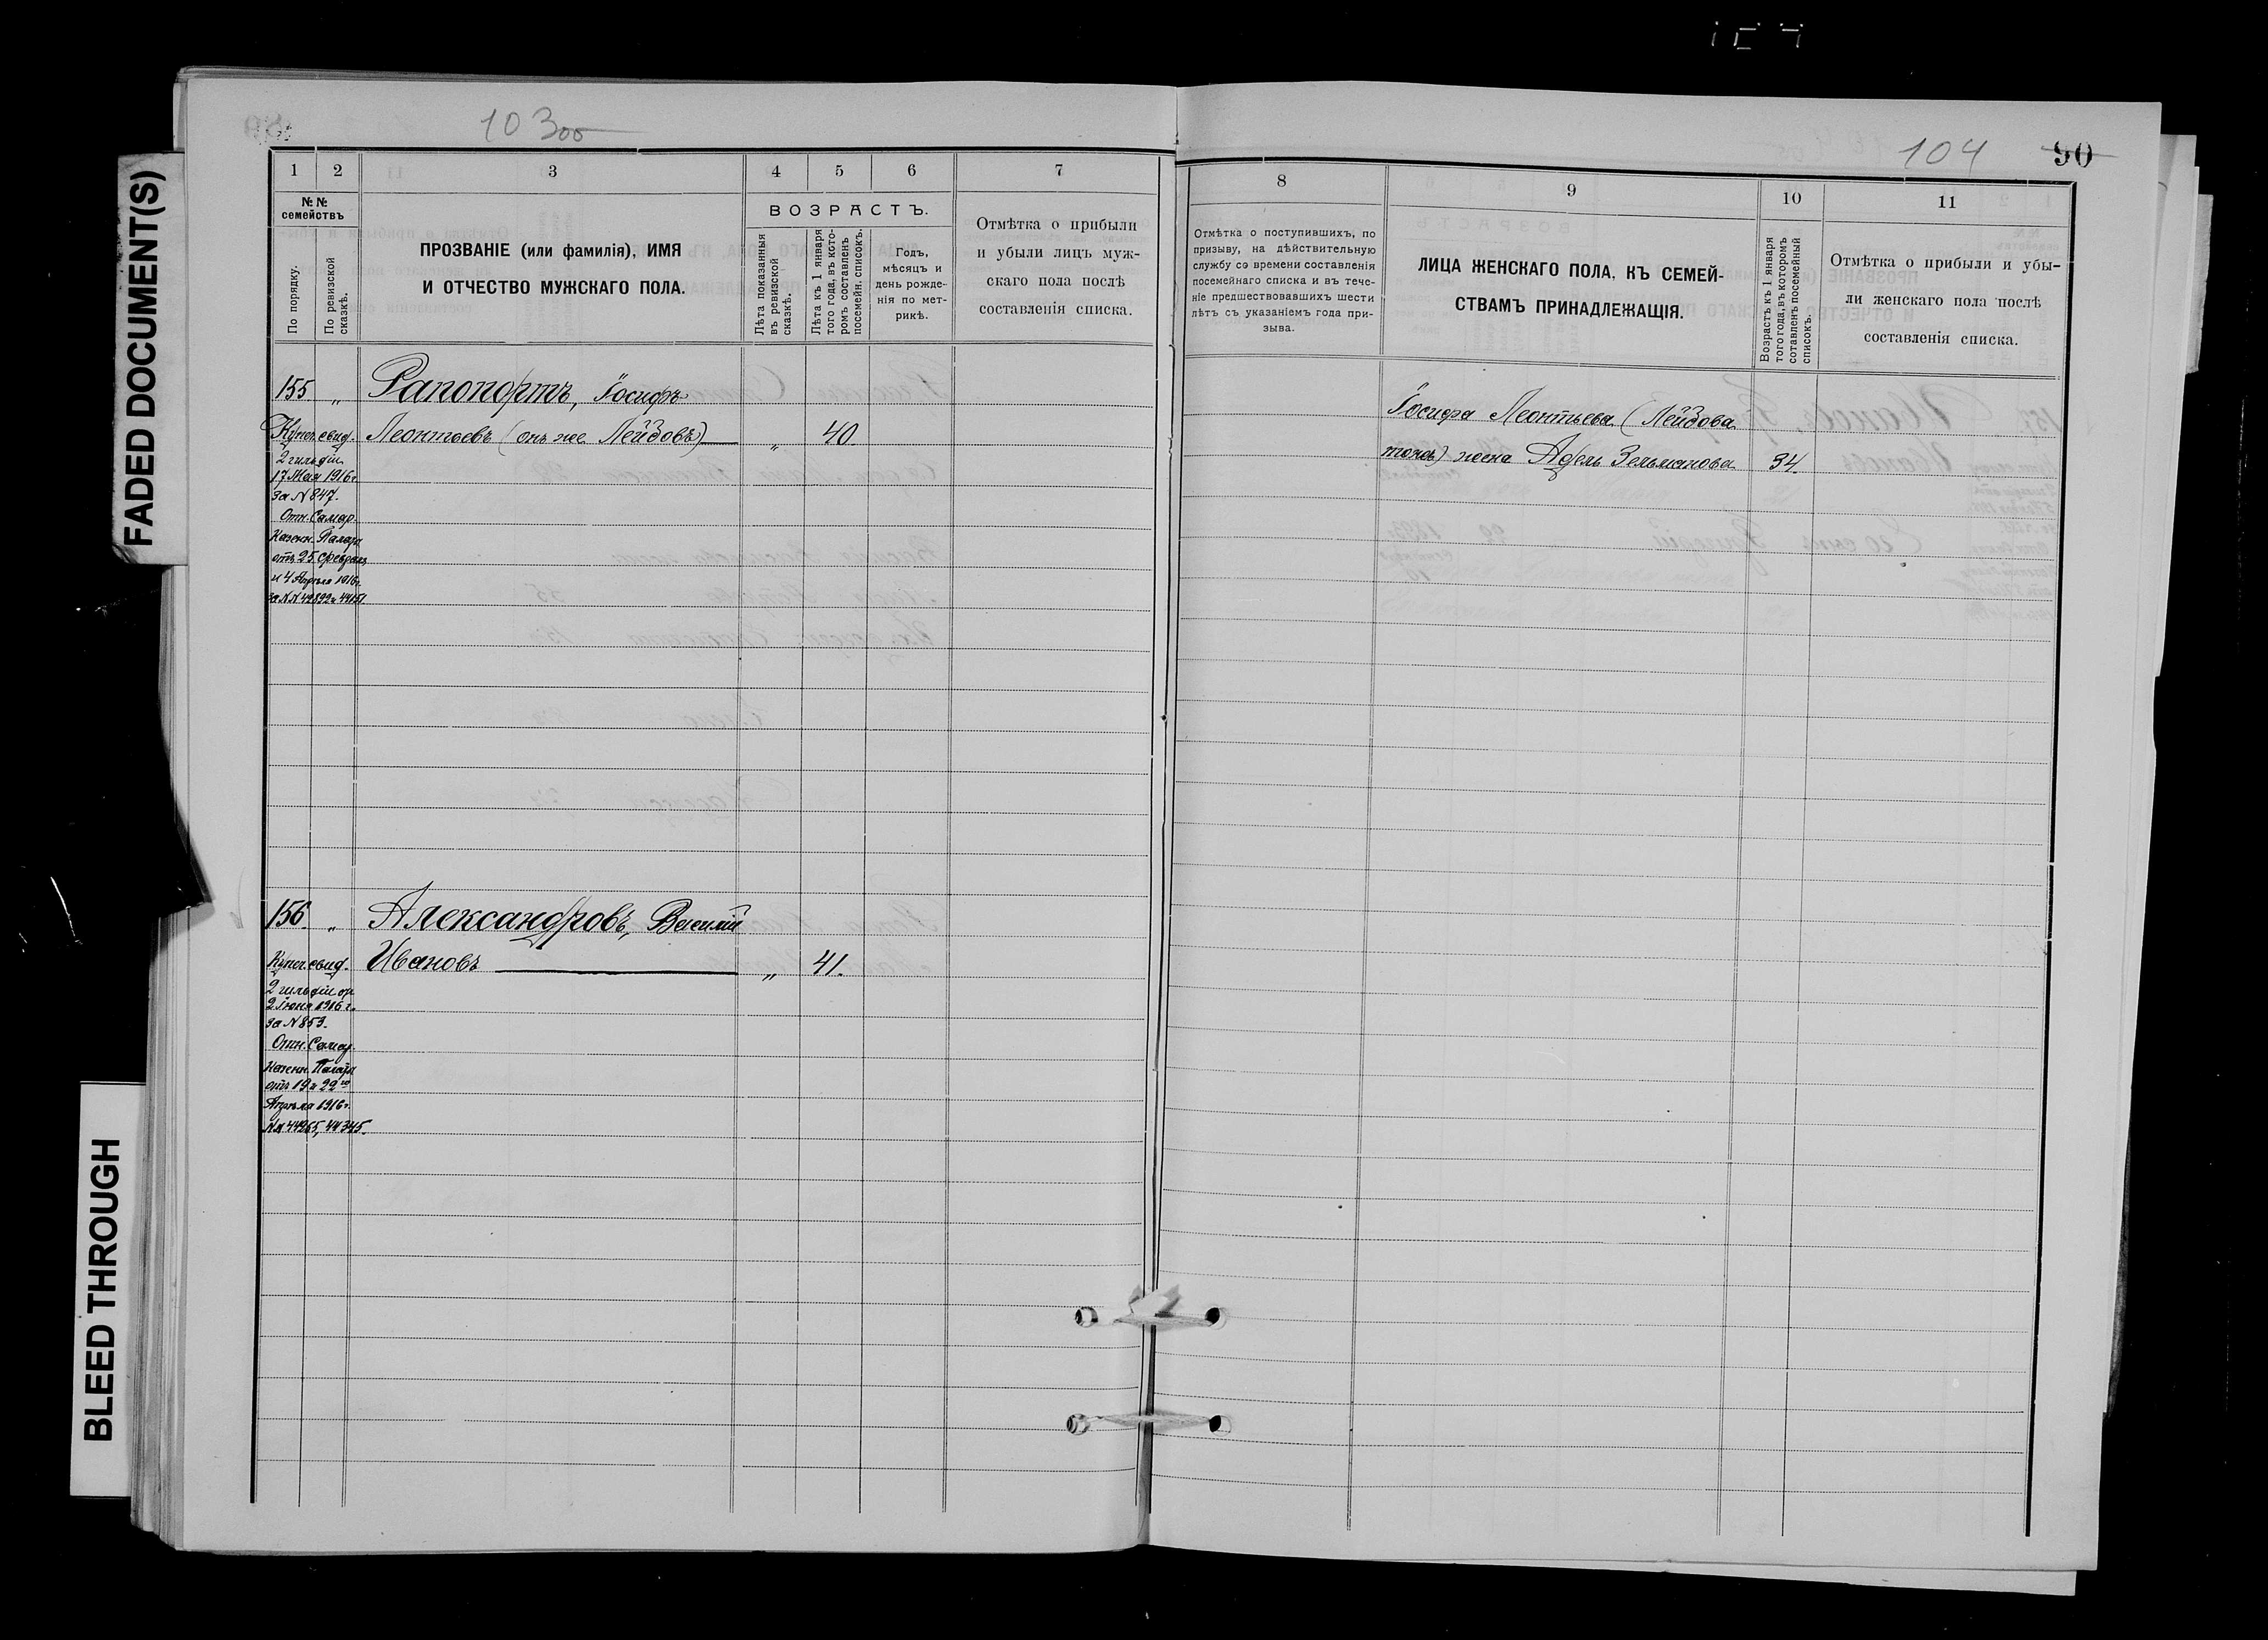 FADED DOCUMENT(S)
BLEED THROUGH
103
104 90
1 2 3 4 5 6 7
№№ семействъ
По порядку.
По ревизской сказкѣ.
ПРОЗВАНІЕ (или фамилія), ИМЯ
И ОТЧЕСТВО МУЖСКАГО ПОЛА.
ВОЗРАСТЪ.
Лѣта показанныя въ ревизской сказкѣ.
Лѣта къ 1 января того года, въ которомъ составленъ посемейн. списокъ.
Годъ,
мѣсяцъ и
день рожде-
нія по мет-
рикѣ.
Отмѣтка о прибыли
и убыли лицъ муж-
скаго пола послѣ
составленія списка.
155 „ Рапопортъ, Іосифъ
Леонтьевъ (онъ же Лейзовъ) „ 40
Купеч. свид.
2 гильдіи
17 Мая 1916 г.
за N 847.
Отн. Самар.
Казенн. Палаты
отъ 25 февраля
и 4 Апрѣля 1916 г.
156. „ Александровъ, Василій
Ивановъ „ 41.
Купеч. свид.
2 гильдіи от
2 Іюня 1916 г.
за N 853.
Отн. Самар.
Казенн. Палаты
отъ 19 и 22го
Апрѣля 1916 г.
NN 44265, 44345.
8 9 10 11
Отмѣтка о поступившихъ, по
призыву, на дѣйствительную
службу со времени составленія
посемейнаго списка и въ тече-
ніе предшествовавшихъ шести
лѣтъ съ указаніемъ года при-
зыва.
ЛИЦА ЖЕНСКАГО ПОЛА, КЪ СЕМЕЙ-
СТВАМЪ ПРИНАДЛЕЖАЩІЯ.
Возрастъ къ 1 января
того года, въ которомъ
сотавленъ посемейный
списокъ.
Отмѣтка о прибыли и убы-
ли женскаго пола послѣ
составленія списка.
Іосифа Леонтьева (Лейзова
тожъ) жена Адель Зельманова 34.